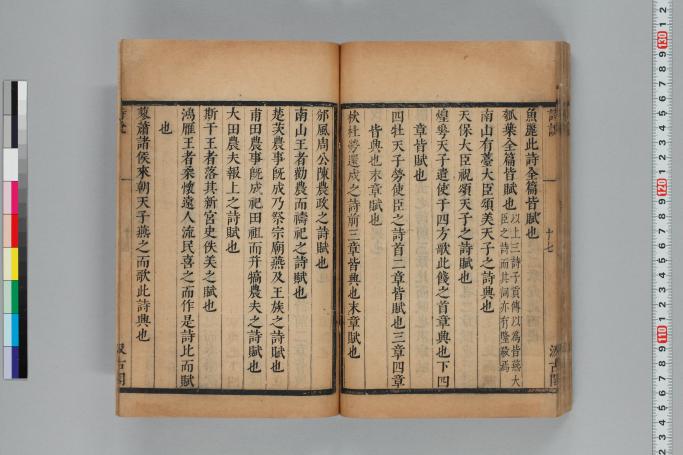 魚麗此詩全篇皆賦也
瓠葉全篇皆賦也以上三詩子貢傳以爲皆燕大臣之詩而其詞亦有隆殺焉
南山有臺大臣頌美天子之詩興也
天保大臣祝頌天子之詩賦也
煌煌天子遣使于四方歌此餞之首章興也下四
章皆賦也
四牡天子勞使臣之詩首二章皆賦也三章四章
皆興也末章賦也
杕杜勞還戍之詩前三章皆興也末章賦也
十七
汲古閣
邠風周公陳農政之詩賦也
南山王者勸農而禱祀之詩賦也
楚茨農事旣成乃祭宗廟燕及王族之詩賦也
甫田農事旣成祀田祖而幷犒農夫之詩賦也
大田農夫報上之詩賦也
斯干王者落其新宮史佚美之賦也
鴻雁王者柔懷遠人流民喜之而作是詩比而賦
也
蓼蕭諸侯來朝天子燕之而歌此詩興也
汲古閣
110
120
130